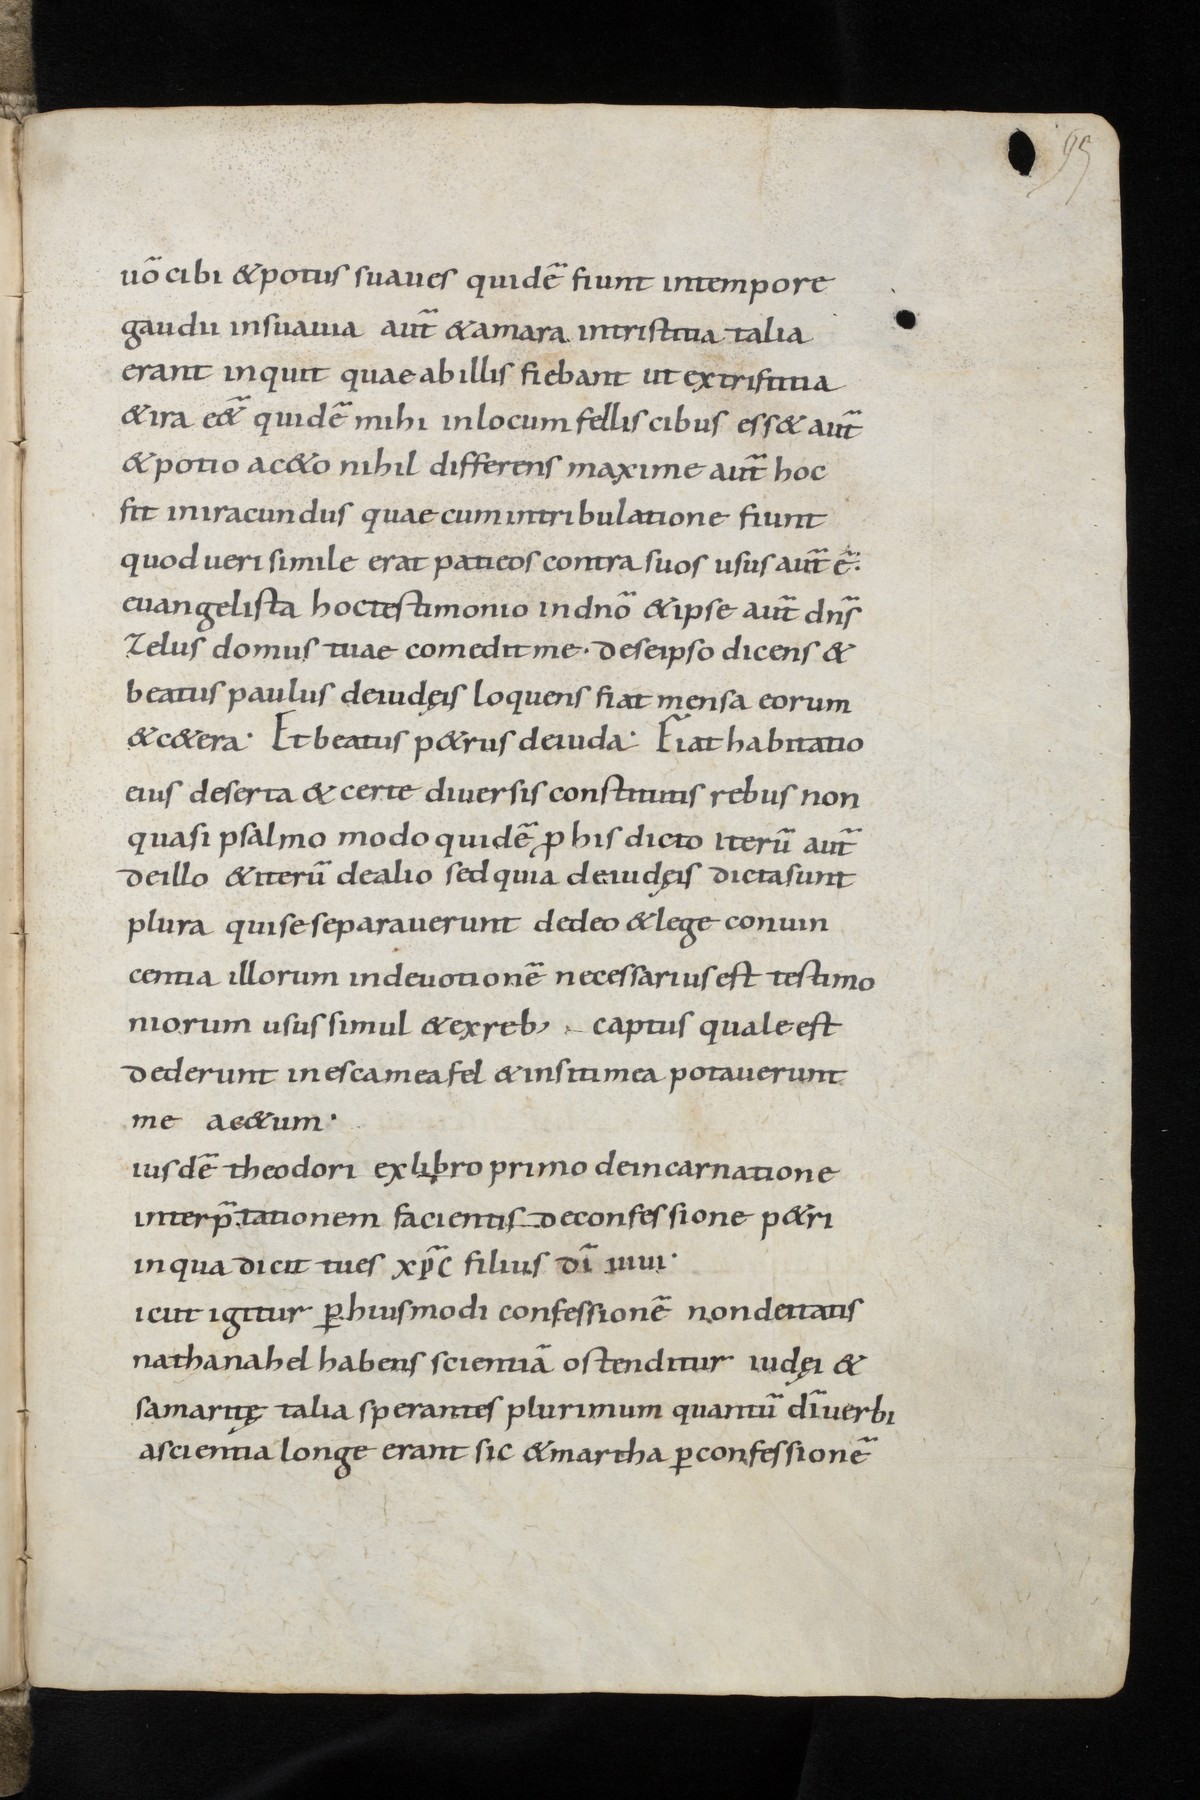 95
uō cibi & potus suaues quidē fiunt intempore
gaudii insuauia aut̄ & amara intristitia talia
erant inquit quae abillis fiebant ut extristitia
& ira e&̄ quidē mihi inlocum fellis cibus ess& aut̄
& potio ac&o nihil differens maxime aut̄ hoc
fit iniracundus quae cumintribulatione fiunt
quod uerisimile erat patieos contra suos usus aut̄ ē·
euangelista hoctestimonio indnō & ipse aut̄ dn̄s
Zelus domus tuae comedit me· deseipso dicens &
beatus paulus deiudęis loquens fiat mensa eorum
& c&era· Et beatus p&rus deiuda· Fiat habitatio
eius deserta & certe diuersis constitutis rebus non
quasi psalmo modo quidē p̄ his dicto iterū aut̄
deillo & iterū dealio sed quia deiudęis dictasunt
plura quise separauerunt dedeo & lege conuin
centia illorum indeuotionē necessarius est testimo
niorum usus simul & exreb, captus quale est
dederunt inescamea fel & insitimea potauerunt
me ac&um·
iusdē theodori exlibro primo deincarnatione
interp̄tationem facientis deconfessione p&ri
inqua dicit tues xp̄c filius dī uiui·
icut igitur p̱ huiusmodi confessionē nondeitatis
nathanahel habens scientiā ostenditur iudęi &
samaritę talia sperantes plurimum quantū dī uerbi
ascientia longe erant sic & martha p̱ confessionē